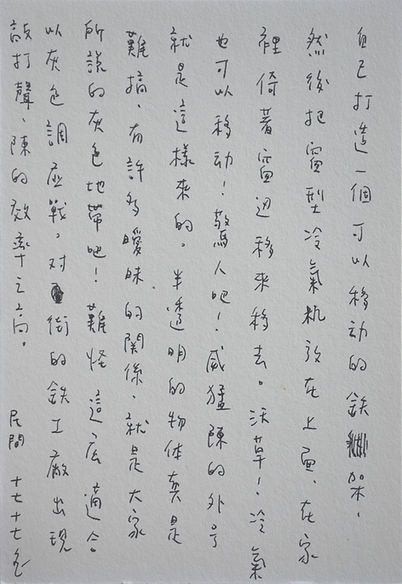 自己打造一個可以移动的鉄架、
然後把窗型冷氣机放在上面、在家
裡倚著窗边移來移去。沃草！冷氣
也可以移动！驚人吧！威猛陳的外号
就是這樣來的。半透明的物体真是
難搞、有許多曖昧的關係、就是大家
所談的灰色地帶吧！難怪這広適合
以灰色調座戰。对街的鉄工廠出現
敲打聲、陳的效率之高。 民間 十七十七色